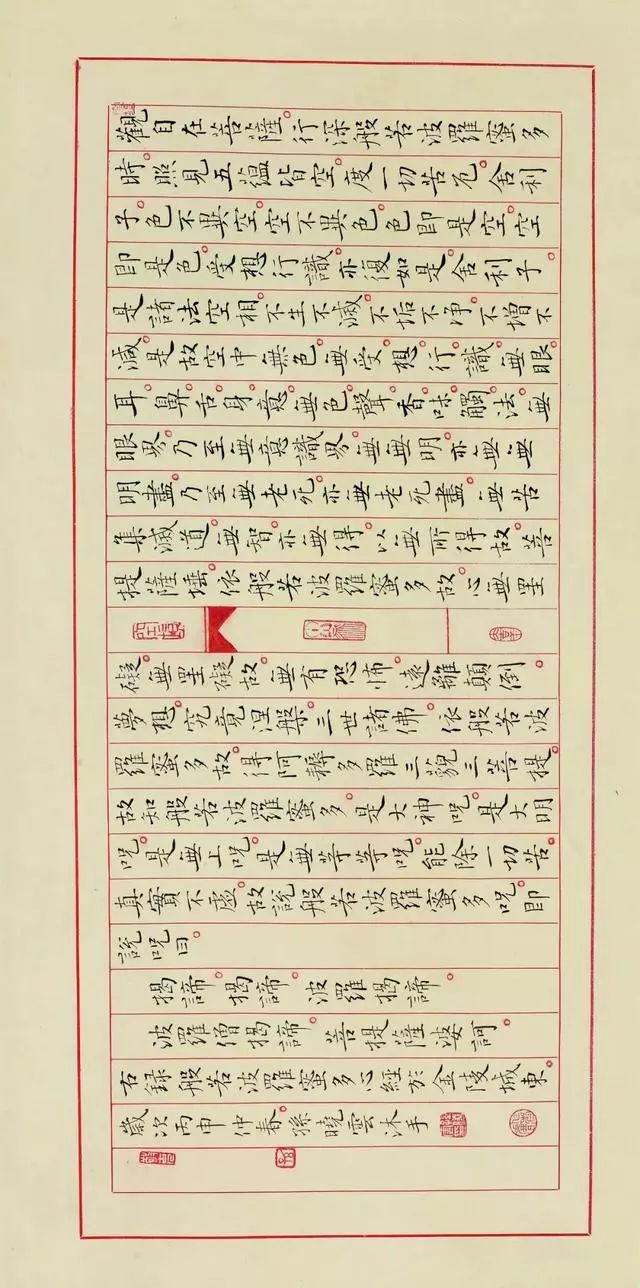 觀自在菩薩。行深般若波羅蜜多
時。照見五蘊皆空。度一切苦厄。舍利
子。色不異空。空不異色。色即是空。空
即是色。受想行識。亦復如是。舍利子。
是諸法空相。不生不滅。不垢不净。不增不
減。是故空中無色。無受。想。行。識。無眼。
耳。鼻。舌。身。意。無色。聲。香。味。觸。法。無
眼界。乃至無意識界。無無明。亦無無
明盡。乃至無老死。亦無老死盡。無苦
集滅道。無智。亦無得。以無所得故。菩
提薩埵。依般若波羅蜜多故。心無罣
礙。無罣礙故。無有恐怖。遠離顛倒
夢想。究竟涅槃。三世諸佛。依般若波
羅蜜多故。得阿耨多羅三藐三菩提。
故知般若波羅蜜多。是大神咒。是大明
咒。是無上咒。是無等等咒。能除一切苦。
真實不虛。故說般若波羅蜜多咒。即
說咒曰。
揭諦。揭諦。波羅揭諦。
波羅僧揭諦。菩提薩婆訶。
右録般若波羅蜜多心經於金陵城東。
歲次丙申仲春。孫曉雲沐手